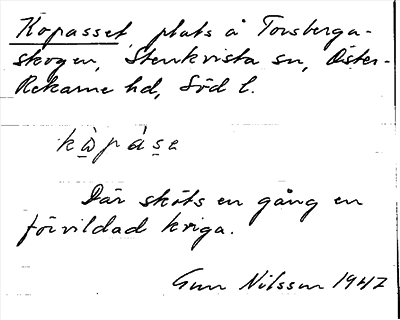 Kopasset, plats å Torsberga-
skogen, Stenkvista sn, Öster-
Rekarne hd, Söd l.
kàpáse
Där sköts en gång en
förvildad kviga.
Gun Nilsson 1947